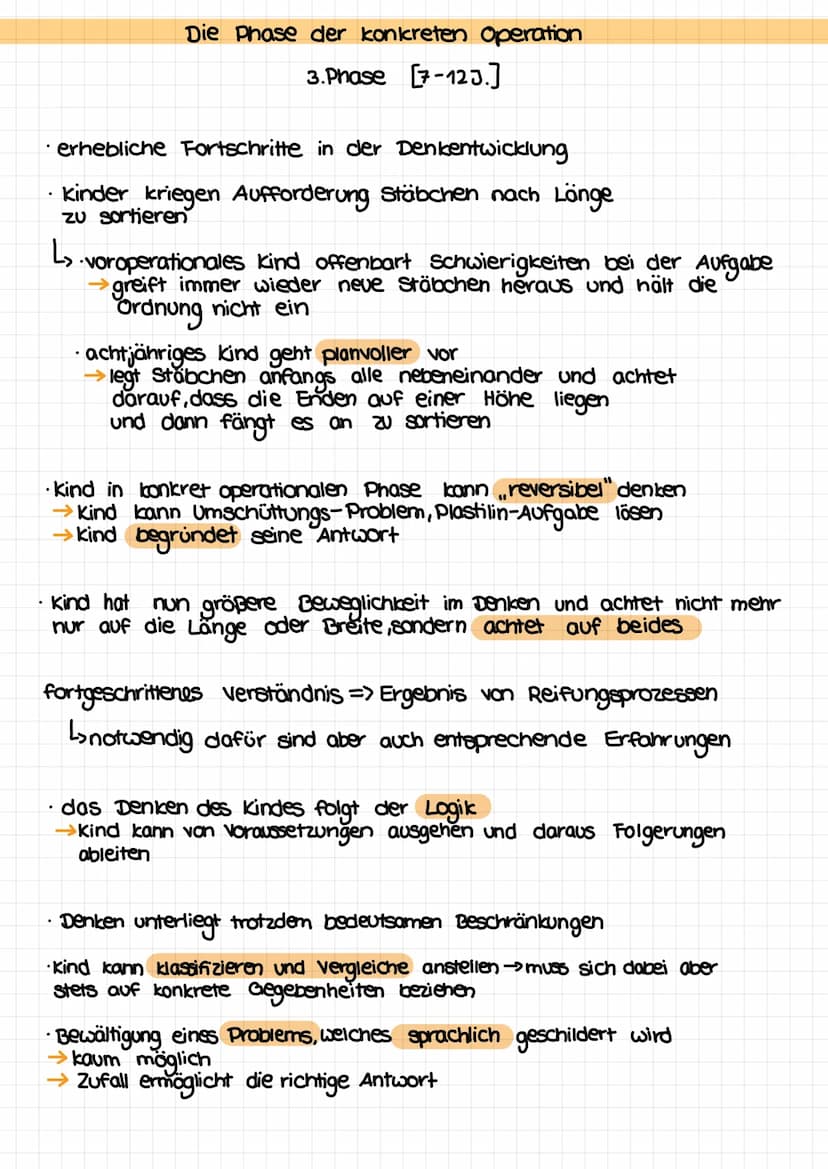 Die Phase der konkreten Operation
3.Phase [7-12J.]
· erhebliche Fortschritte in der Denkentwicklung
· Kinder kriegen Aufforderung Stäbchen nach Länge
zu sortieren
↳ ·voroperationales Kind offenbart Schwierigkeiten bei der Aufgabe
→ greift immer wieder neue Stäbchen heraus und hält die
Ordnung nicht ein
· achtjähriges Kind geht planvoller vor
→ legt Stäbchen anfangs alle nebeneinander und achtet
darauf, dass die Enden auf einer Höhe liegen
und dann fängt es an zu sortieren
· Kind in konkret operationalen Phase kann „reversibel" denken
→ Kind kann Umschüttungs-Problem, Plastilin-Aufgabe lösen
→ Kind begründet seine Antwort
· Kind hat nun größere Beweglichkeit im Denken und achtet nicht mehr
nur auf die Länge oder Breite, sondern achtet auf beides
fortgeschrittenes Verständnis => Ergebnis von Reifungsprozessen
↳ notwendig dafür sind aber auch entsprechende Erfahrungen
· das Denken des Kindes folgt der Logik
→ Kind kann von Voraussetzungen ausgehen und daraus Folgerungen
ableiten
· Denken unterliegt trotzdem bedeutsamen Beschränkungen
· Kind kann klassifizieren und Vergleiche anstellen → muss sich dabei aber
stets auf konkrete Gegebenheiten beziehen
· Bewältigung eines Problems, welches sprachlich geschildert wird
→ kaum möglich
→ Zufall ermöglicht die richtige Antwort